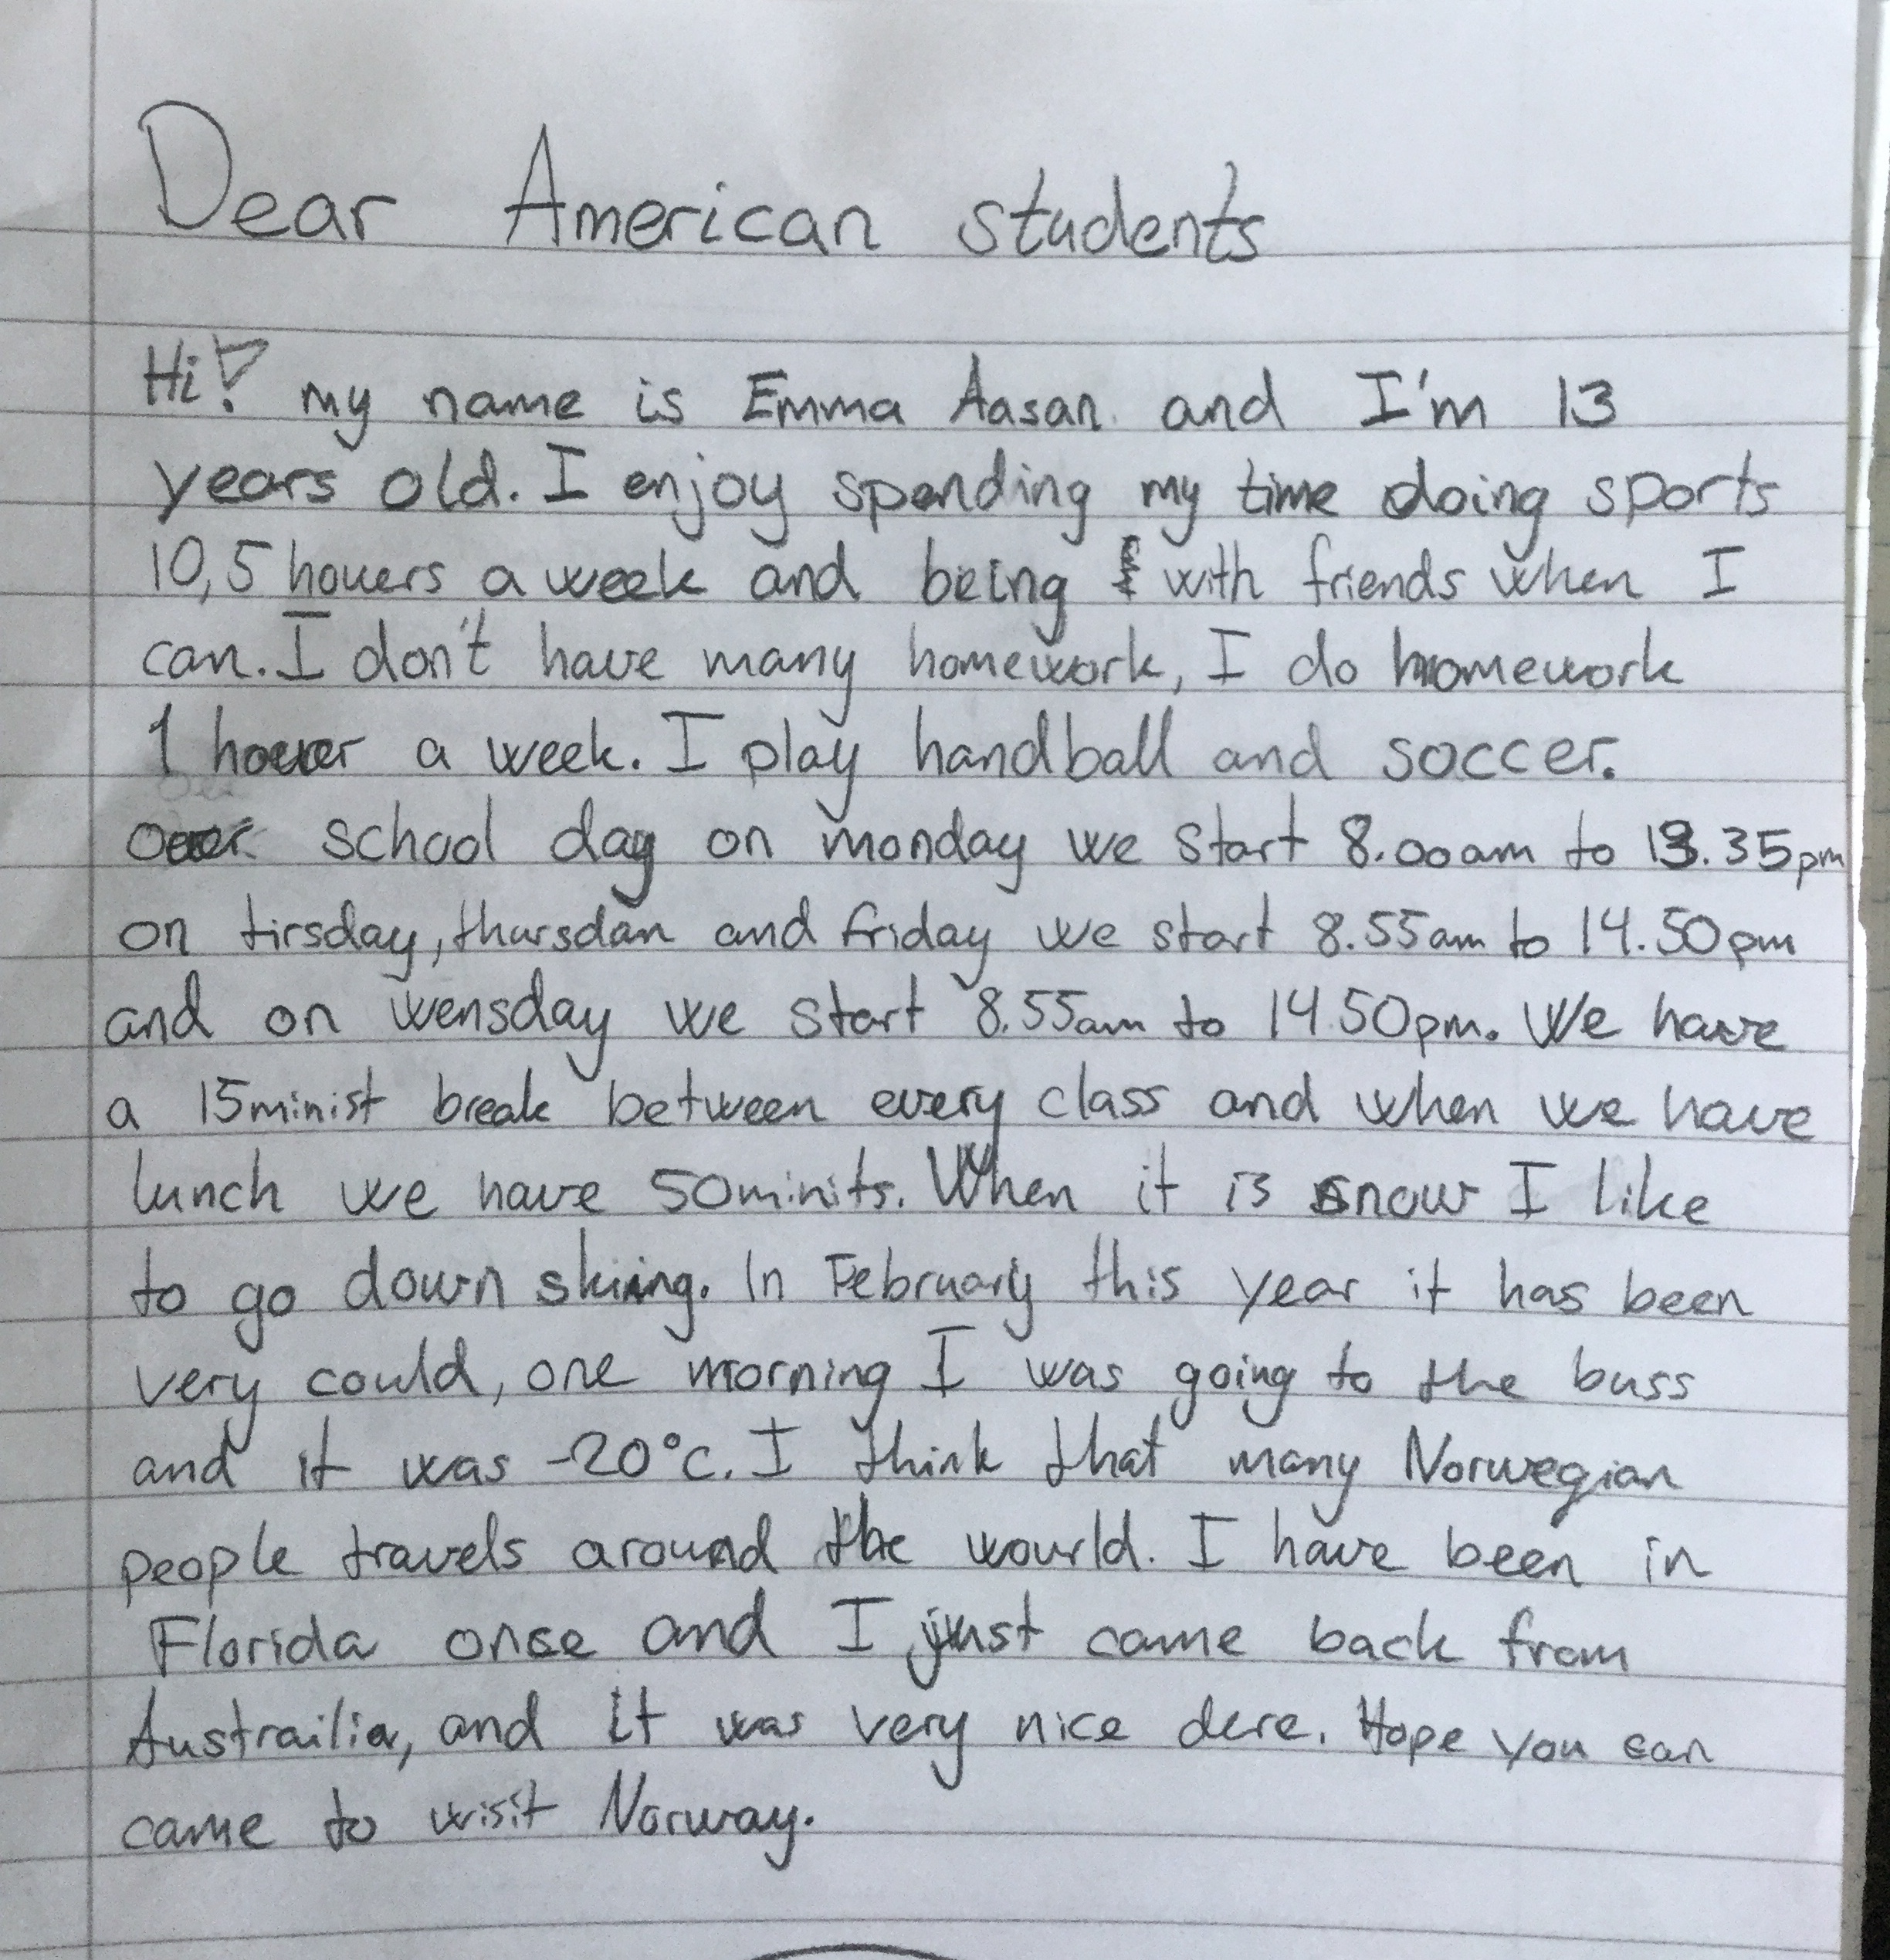 Dear American students
Hi! my name is Emma Aasan and I'm 13
years old. I enjoy spending my time doing sports
10,5 houers a week and being with friends when I
can. I don't have many homework, I do homework
1 houer a week. I play handball and soccer.
school day on monday we start 8.00am to 13.35pm
on tirsday, thursdan and friday we start 8.55am to 14.50pm
and on wensday we start 8.55am to 14.50pm. We have
a 15minist break between every class and when we have
lunch we have 50minits. When it is snow I like
to go down skiing. In February this year it has been
very could, one morning I was going to the buss
and it was -20°c. I think that many Norwegian
people travels around the wourld. I have been in
Florida once and I just came back from
Austrailia, and it was very nice dere. Hope you can
came to visit Norway.